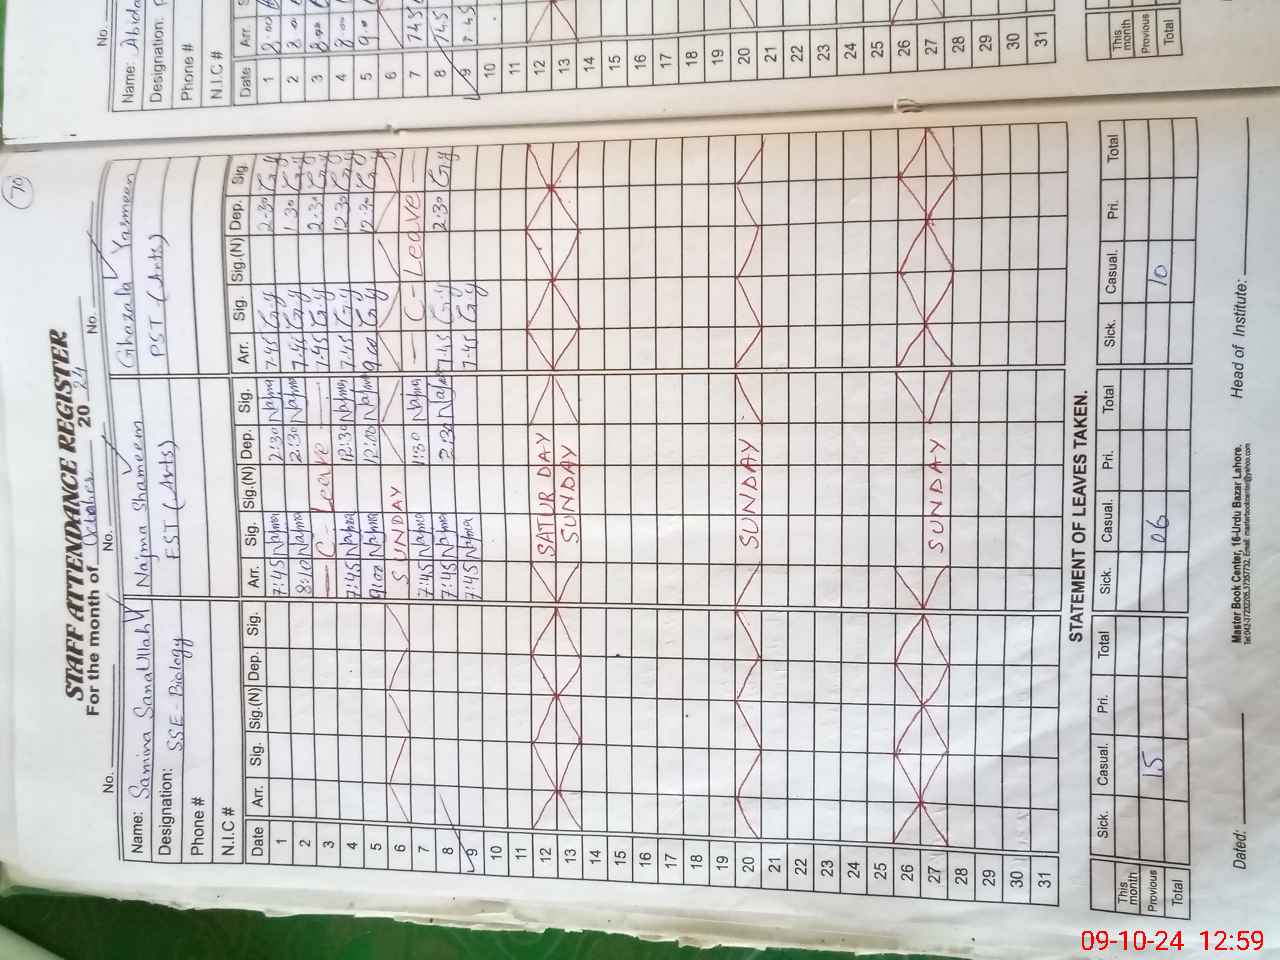 70
STAFF ATTENDANCE REGISTER
For the month of October 2024
No. No. No.
Name: Samina Sanaullah Najma Shameem Ghazala Yasmeen
Designation: SSE-Biology EST (Arts) PST (Arts)
Phone #
N.I.C #
Date Arr. Sig. Sig.(N) Dep. Sig. Arr. Sig. Sig.(N) Dep. Sig. Arr. Sig. Sig.(N) Dep. Sig.
1 7:45 Najma 2:30 Najma 7:45 G.Y 2:30 G.Y
2 8:10 Najma 2:30 Najma 7:45 G.Y 1:30 G.Y
3 C- Leave 7:45 G.Y 2:30 G.Y
4 7:45 Najma 12:30 Najma 7:45 G.Y 12:30 G.Y
5 9:00 Najma 12:00 Najma 9:00 G.Y 12:30 G.Y
6 SUNDAY
7 7:45 Najma 1:30 Najma C- Leave
8 7:45 Najma 2:30 Najma 7:45 G.Y 2:30 G.Y
9 7:45 Najma 7:45 G.Y
10
11
12 SATURDAY
13 SUNDAY
14
15
16
17
18
19
20 SUNDAY
21
22
23
24
25
26
27 SUNDAY
28
29
30
31
STATEMENT OF LEAVES TAKEN.
Sick. Casual. Pri. Total Sick. Casual. Pri. Total Sick. Casual. Pri. Total
This month
Previous 15 06 10
Total
Dated: Master Book Center, 16-Urdu Bazar Lahore. Head of Institute:
No.
Name: Abida
Designation:
Phone #
N.I.C #
Date Arr.
1 8:00
2 8:00
3 8:00
4 8:00
5 9:00
6
7 7:45
8 7:45
9 7:45
10
11
12
13
14
15
16
17
18
19
20
21
22
23
24
25
26
27
28
29
30
31
This month
Previous
Total
09-10-24 12:59